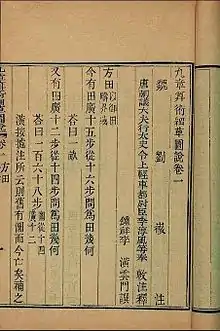 九章算術細草圖說卷一
魏 劉 徽 注
唐朝議大夫行太史令上輕車都尉臣李淳風等奉 敕注釋
鍾祥李 潢雲門譔
方田 以御田疇界域
今有田廣十五步從十六步問爲田幾何
荅曰一畝
又有田廣十二步從十四步問爲田幾何
荅曰一百六十八步 圖從十四廣十二
潢按據注所云則舊有圖而今亡矣補之